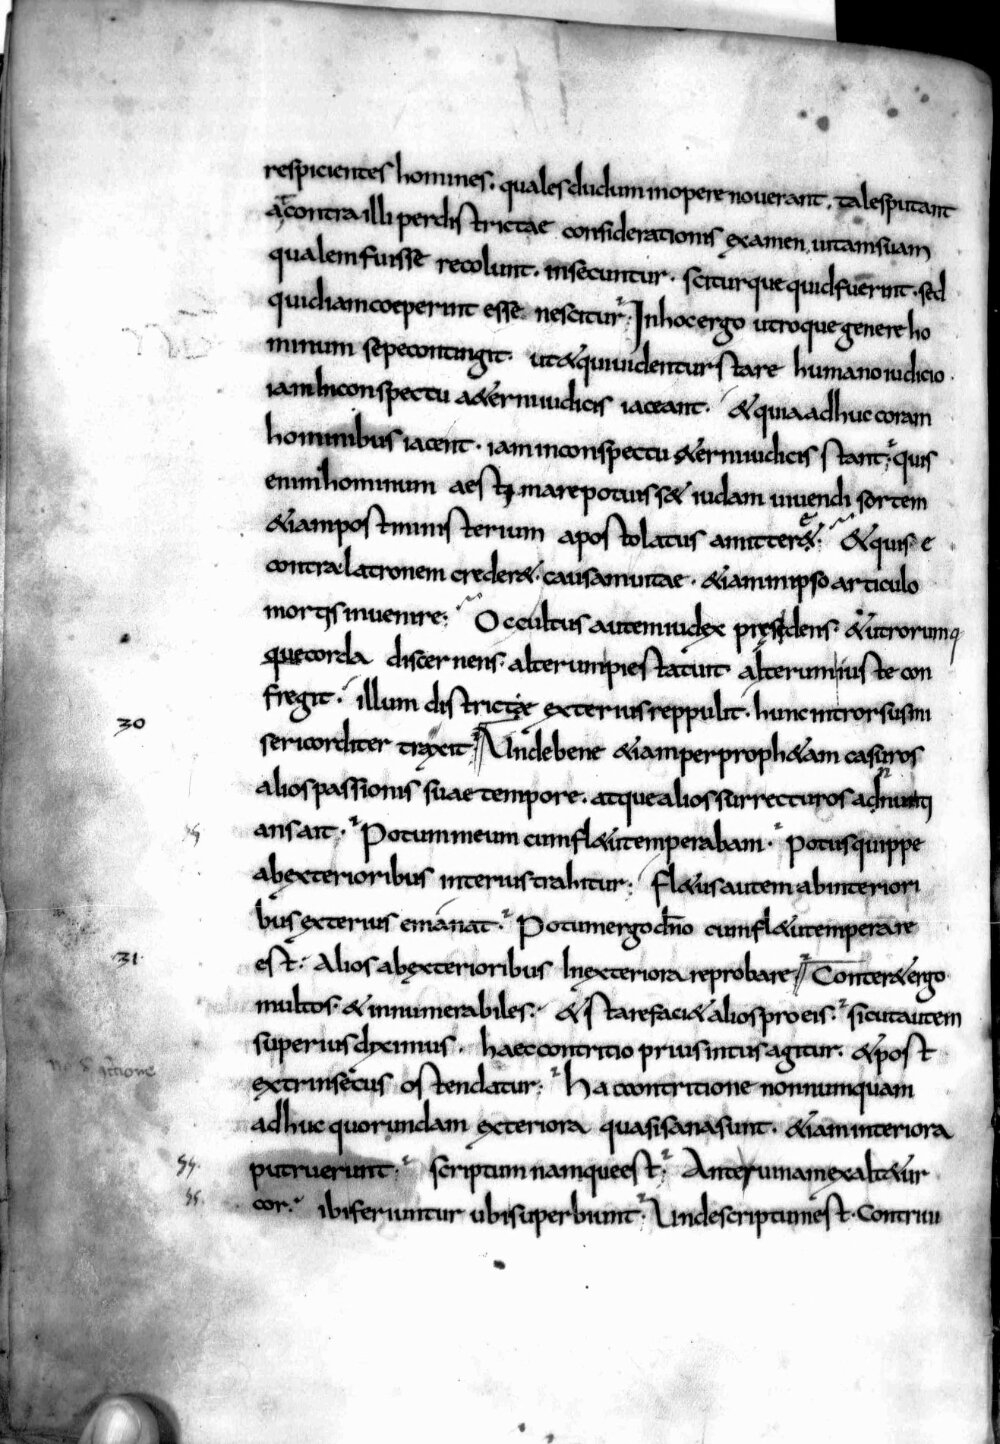 respicientes homines. quales dudum in opere noverant. tales putant
a contra illi perdistrictae considerationis examen vitam suam
qualem fuisse recolunt. insecuntur. sciturque quid fuerint. sed
quid iam coeperint esse nescitur; In hoc ergo utroque genere ho
minum sepe contingit. ut & qui videntur stare humano iudicio.
iam in conspectu a&erni iudicis iaceant. & quia adhuc coram
hominibus iacent. iam in conspectu &erni iudicis stant; quis
enim hominum aestimare potuiss& iudam vivendi sortem
&iam post ministerium apostolatus amitter&; & quis e
contra latronem creder&. causam vitae. &iam in ipso articulo
mortis invenire; Occultus autem iudex presedens. & utrorumq
que corda discernens. alterum pie statuit alterum iuste con
fregit. illum districte exterius reppulit. hunc introrsus mi
30 sericorditer traxit; Unde bene &iam per proph&am casuros
alios passionis suae tempore. atque alios surrecturos adnunti
ans ait. Potum meum cum fl&u temperabam. Potus quippe
ab exterioribus interius trahitur; Fl&us autem ab interiori
bus exterius emanat. Potum ergo dño cum fl&u temperare
31. est. Alios ab exterioribus In exteriora reprobare; Conter& ergo
multos. & innumerabiles. & stare faci& alios pro eis. sicut autem
superius diximus. haec contritio prius intus agitur. & post
extrinsecus ostendatur; Hac contritione nonnumquam
adhuc quorundam exteriora quasi sana sunt. &iam interiora
putruerunt. scriptum namque est; Ante ruinam exalt&ur
cor. ibi feriuntur ubi superbiunt. Unde scriptum est. Contriui